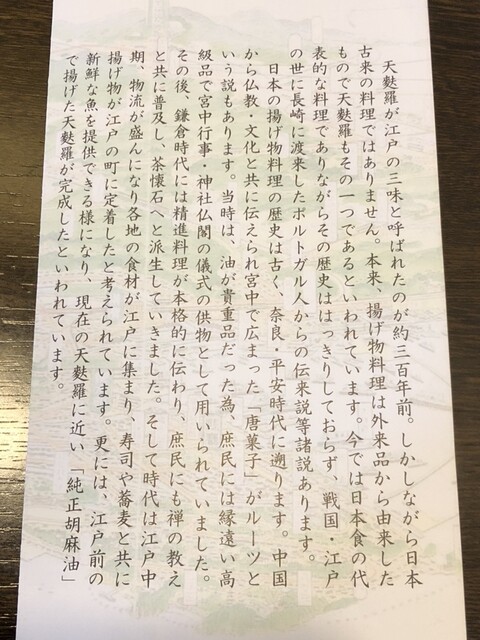 天麩羅が江戸の三味と呼ばれたのが約三百年前。しかしながら日本
古来の料理ではありません。本来、揚げ物料理は外来品から由来した
もので天麩羅もその一つであるといわれています。今では日本食の代
表的な料理でありながらその歴史ははっきりしておらず、戦国・江戸
の世に長崎に渡来したポルトガル人からの伝来説等諸説あります。
日本の揚げ物料理の歴史は古く、奈良・平安時代に遡ります。中国
から仏教・文化と共に伝えられ宮中で広まった「唐菓子」がルーツと
いう説もあります。当時は、油が貴重品だった為、庶民には縁遠い高
級品で宮中行事・神社仏閣の儀式の供物として用いられていました。
その後、鎌倉時代には精進料理が本格的に伝わり、庶民にも禅の教え
と共に普及し、茶懐石へと派生していきました。そして時代は江戸中
期、物流が盛んになり各地の食材が江戸に集まり、寿司や蕎麦と共に
揚げ物が江戸の町に定着したと考えられています。更には、江戸前の
新鮮な魚を提供できる様になり、現在の天麩羅に近い「純正胡麻油」
で揚げた天麩羅が完成したといわれています。